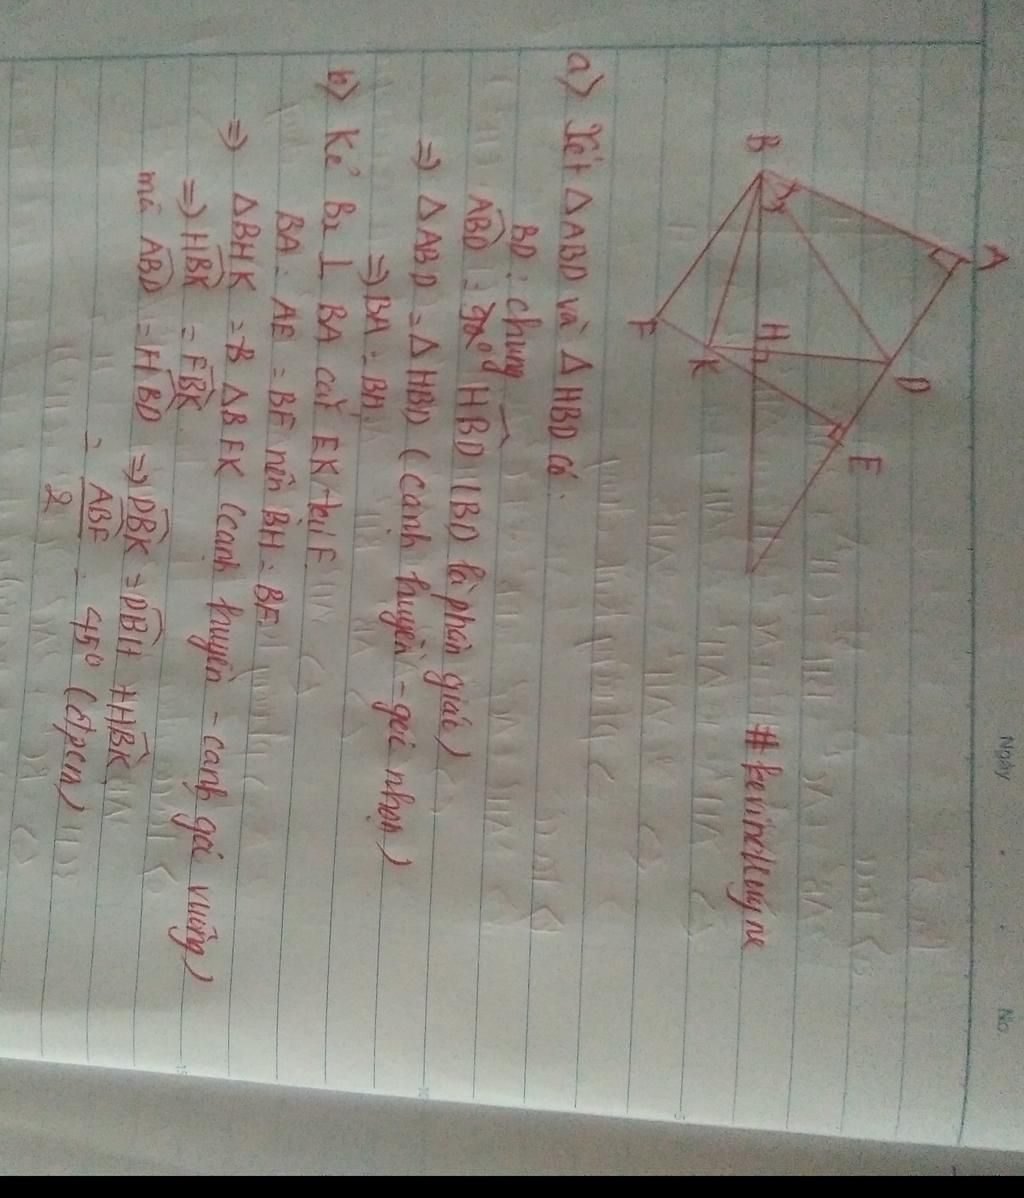 Ngày
No.
A
B
D
E
H
K
F
# kevinolluyne
a) Xét △ABD và △HBD có:
BD: chung
ABD = HBD (BD là phân giác)
=> △ABD = △HBD (cạnh huyền - góc nhọn)
=> BA = BH
b) Kẻ Bx ⊥ BA cắt EK tại F
BA = AE = BF nên BH = BF
=> △BHK = △BFK (cạnh huyền - cạnh góc vuông)
=> HBK = FBK
mà ABD = HBD => DBK = DBH + HBK
= ABF/2 = 45° (đpcm)